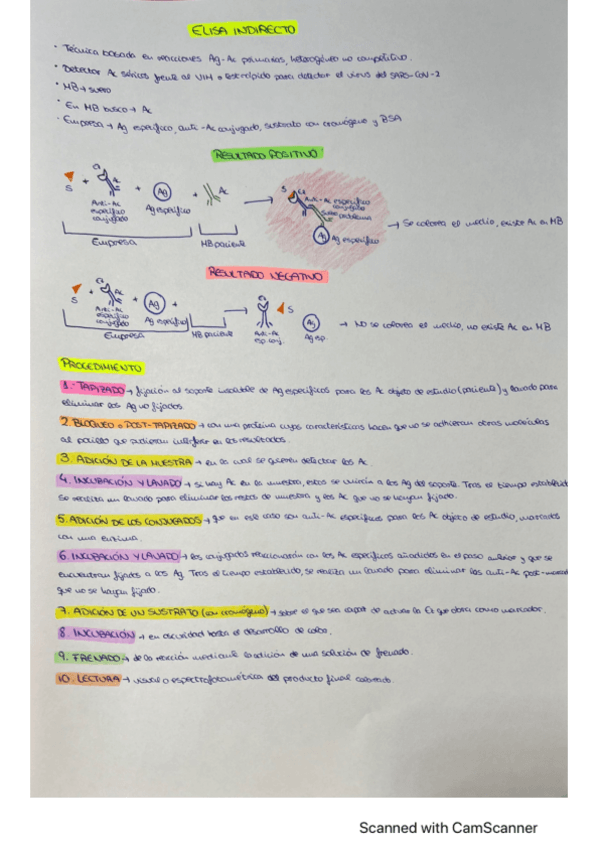 ELISA INDIRECTO
· Técnica basada en reacciones Ag-Ac primarias, heterogéneo no competitivo.
· Detectar Ac séricos frente al VIH o test rápido para detectar el virus del SARS-COV-2
· MB → suero
· En MB busco → Ac
· Empresa → Ag específico, anti-Ac conjugado, sustrato con cromógeno y BSA
RESULTADO POSITIVO
S + Anti-Ac específico conjugado + Ag Ag específico + Ac
Empresa MB paciente
S Anti-Ac específico conjugado
Ag Ag específico
→ Se colorea el medio, existe Ac en MB
RESULTADO NEGATIVO
S + Anti-Ac específico conjugado + Ag Ag específico +
Empresa MB paciente
Anti-Ac esp conj. S Ag Ag esp.
→ NO se colorea el medio, no existe Ac en MB
PROCEDIMIENTO
1.- TAPIZADO → fijación al soporte insoluble de Ag específicos para los Ac objeto de estudio (paciente) y lavado para
eliminar los Ag no fijados.
2. BLOQUEO o POST-TAPIZADO → con una proteína cuyas características hacen que no se adhieran otras moléculas
al pocillo que pudieran interferir en los resultados.
3. ADICIÓN DE LA MUESTRA → en la cual se quieren detectar los Ac.
4. INCUBACIÓN Y LAVADO → si hay Ac en la muestra, estos se unirán a los Ag del soporte. Tras el tiempo establecid
se realiza un lavado para eliminar los restos de muestra y los Ac que no se hayan fijado.
5. ADICIÓN DE LOS CONJUGADOS → que en este caso son anti-Ac específicos para los Ac objeto de estudio, marcados
con una enzima.
6. INCUBACIÓN Y LAVADO → los conjugados reaccionarán con los Ac específicos añadidos en el paso anterior y que se
encuentran fijados a los Ag. Tras el tiempo establecido, se realiza un lavado para eliminar los anti-Ac
que no se hayan fijado.
7. ADICIÓN DE UN SUSTRATO (con cromógeno) → sobre el que sea capaz de actuar la E que obra como marcador.
8. INCUBACIÓN → en oscuridad hasta el desarrollo de color.
9. FRENADO → de la reacción mediante la adición de una solución de frenado.
10. LECTURA → visual o espectrofotométrica del producto final coloreado.
Scanned with CamScanner